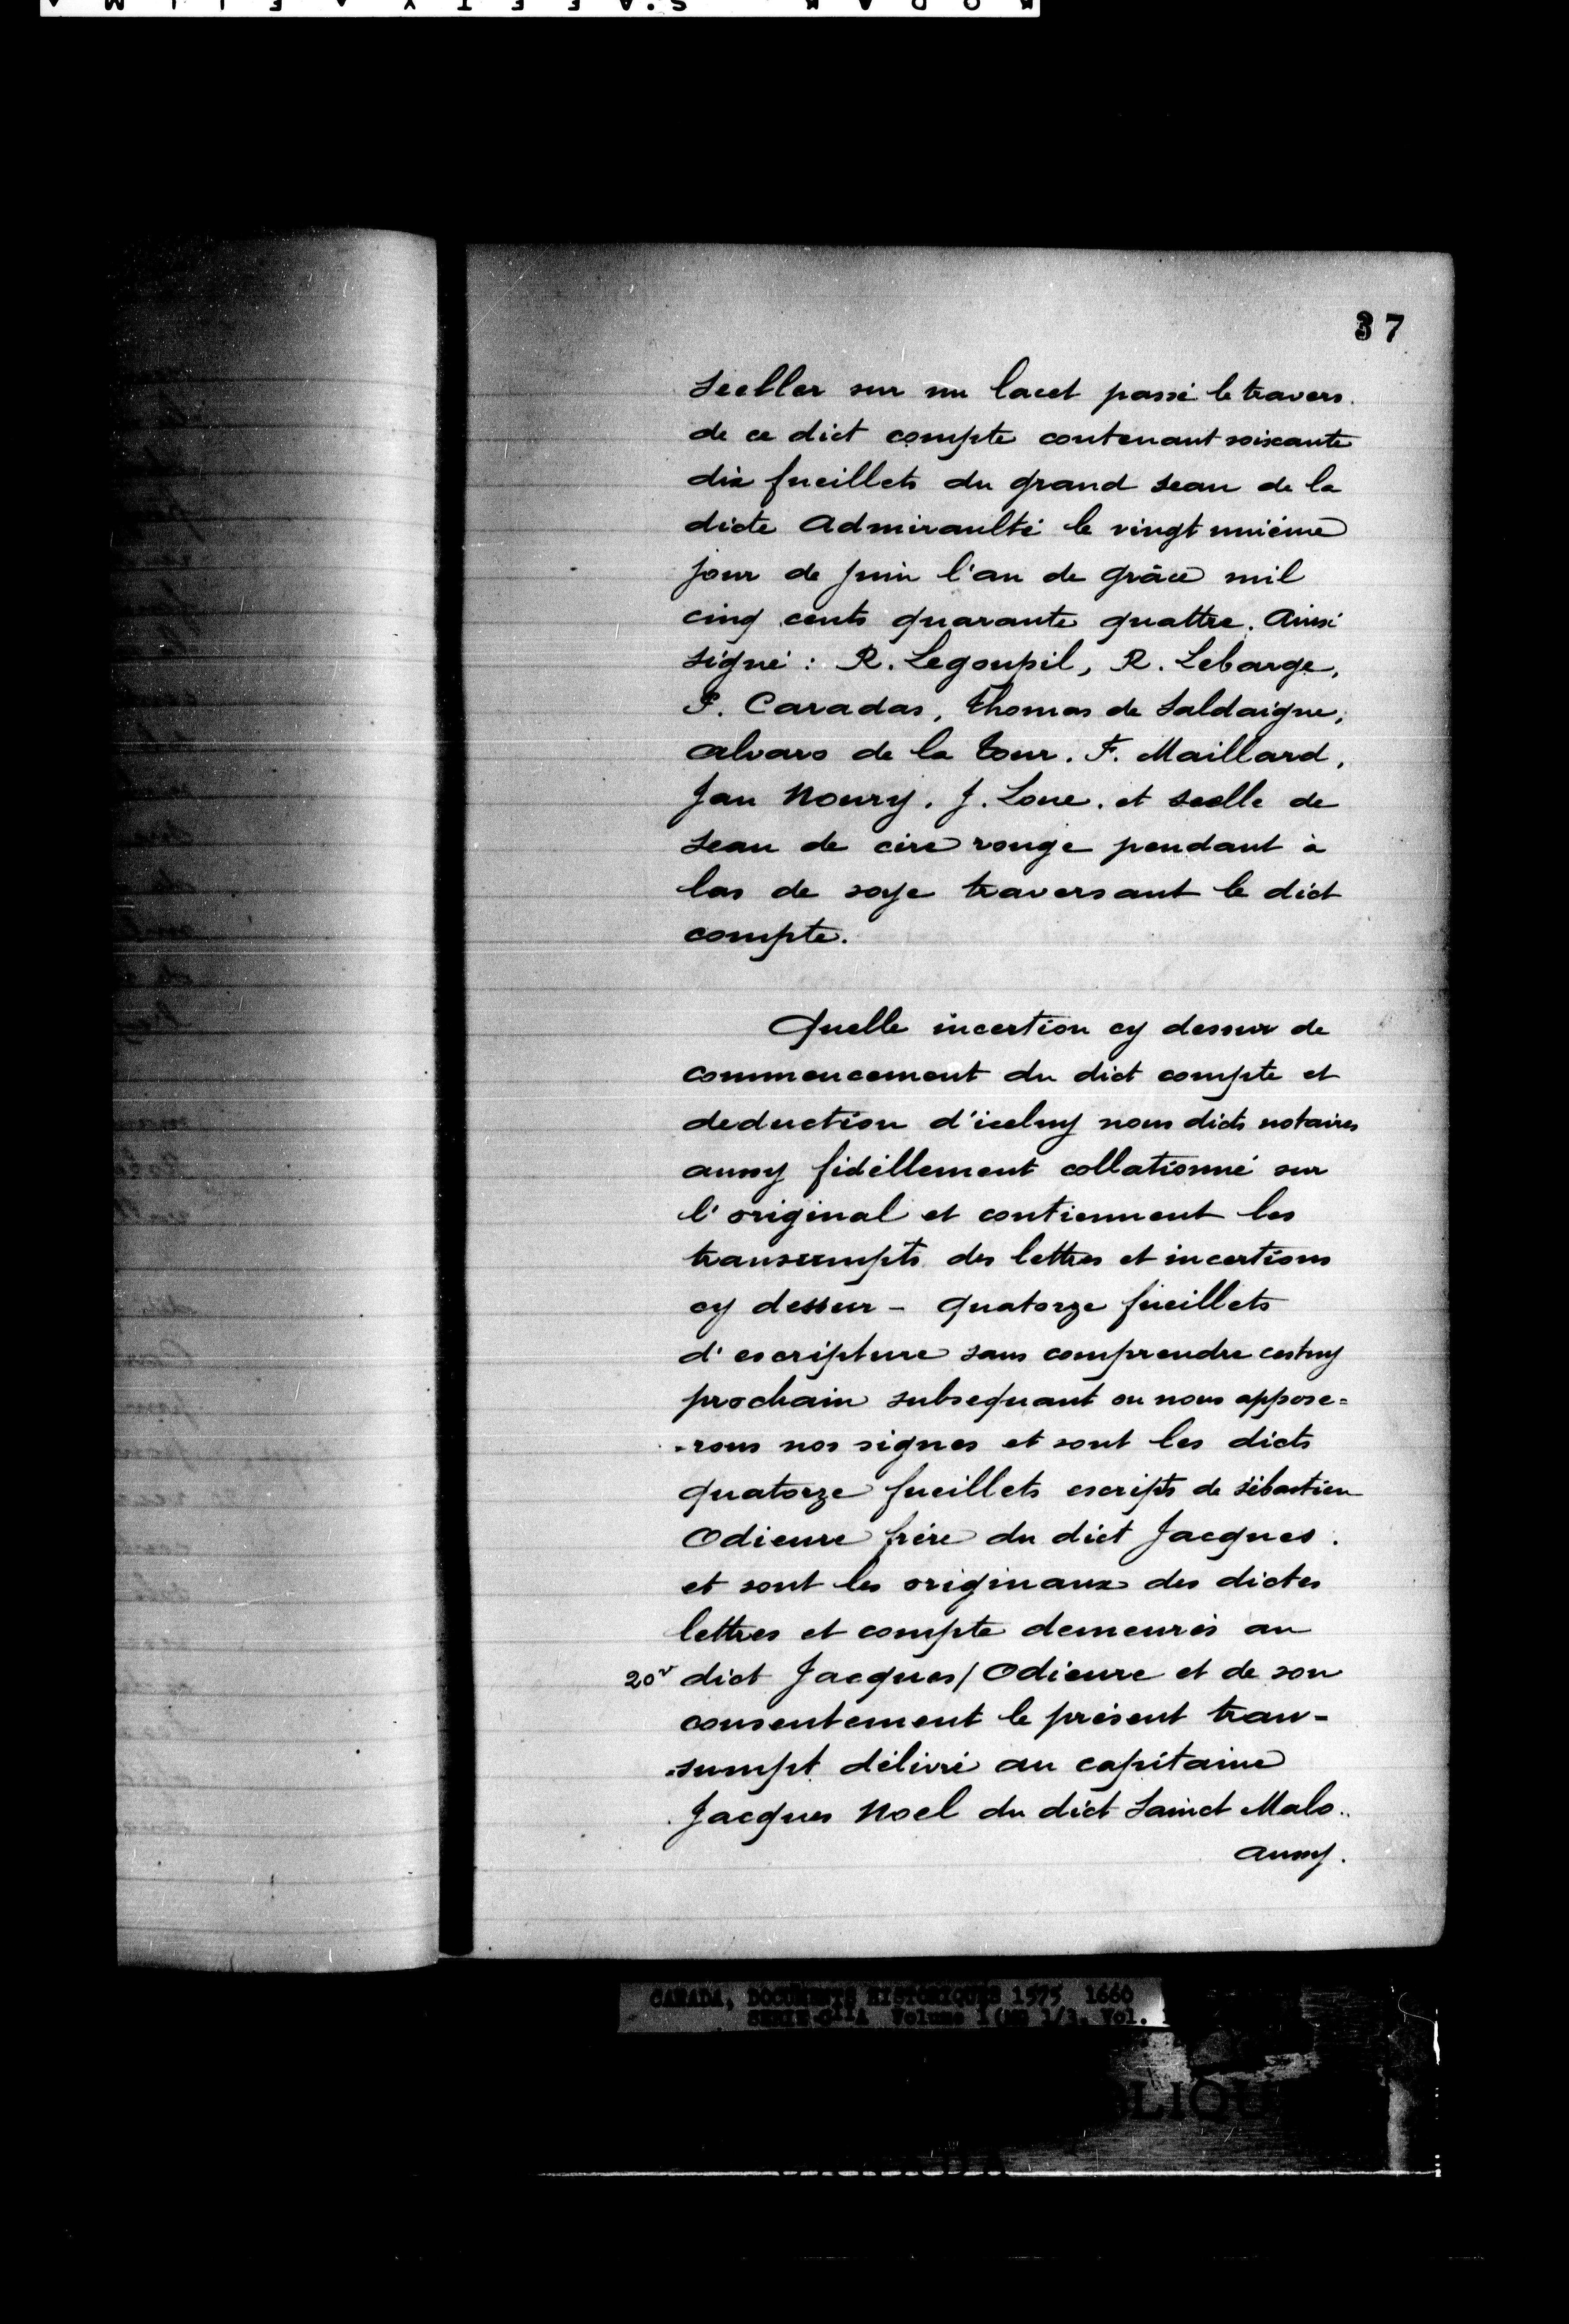 37
Seeller sur un lacet passé le travers
de ce dict compte contenant soixante
dix fueillets du grand seau de la
dicte Admiraulté le vingt unième
jour de juin l'an de grâce mil
cinq cents quarante quattre. Ainsi
signé : R. Legoupil, R. Lebarge,
P. Caradas, Thomas de Saldaigne,
Alvaro de la Tour. F. Maillard,
Jan Noury. J. Loue. et seelle de
seau de cire rouge pendant à
las de soye traversant le dict
compte.
Quelle incertion cy dessur de
commencement du dict compte et
deduction d'iceluy nous dicts notaires
auxy fidéllement collationné sur
l'original et contiennent les
transumpts des lettres et incertions
cy dessur - quatorze fueillets
d'escripture sans comprendre cestuy
prochain subsequant ou nous appose=
=rons nos signes et sont les dicts
quatorze fueillets escripts de Sébastien
Odieure frère du dict Jacques.
et sont les originaux des dictes
lettres et compte demeurés au
20v dict Jacques/Odieure et de son
consentement le présent tran=
=sumpt délivré au capitaine
Jacques Noel du dict Sainct Malo..
aussy.
CANADA, DOCUMENTS HISTORIQUES 1575 1660
SERIE C11A Volume 1 (MG 1/3, Vol.
LIQU